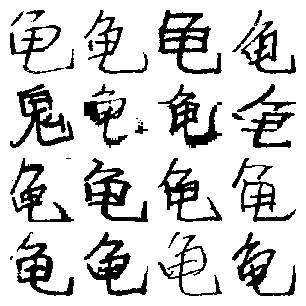 龟龟龟龟
鬼龟龟龟
龟龟龟龟
龟龟龟龟